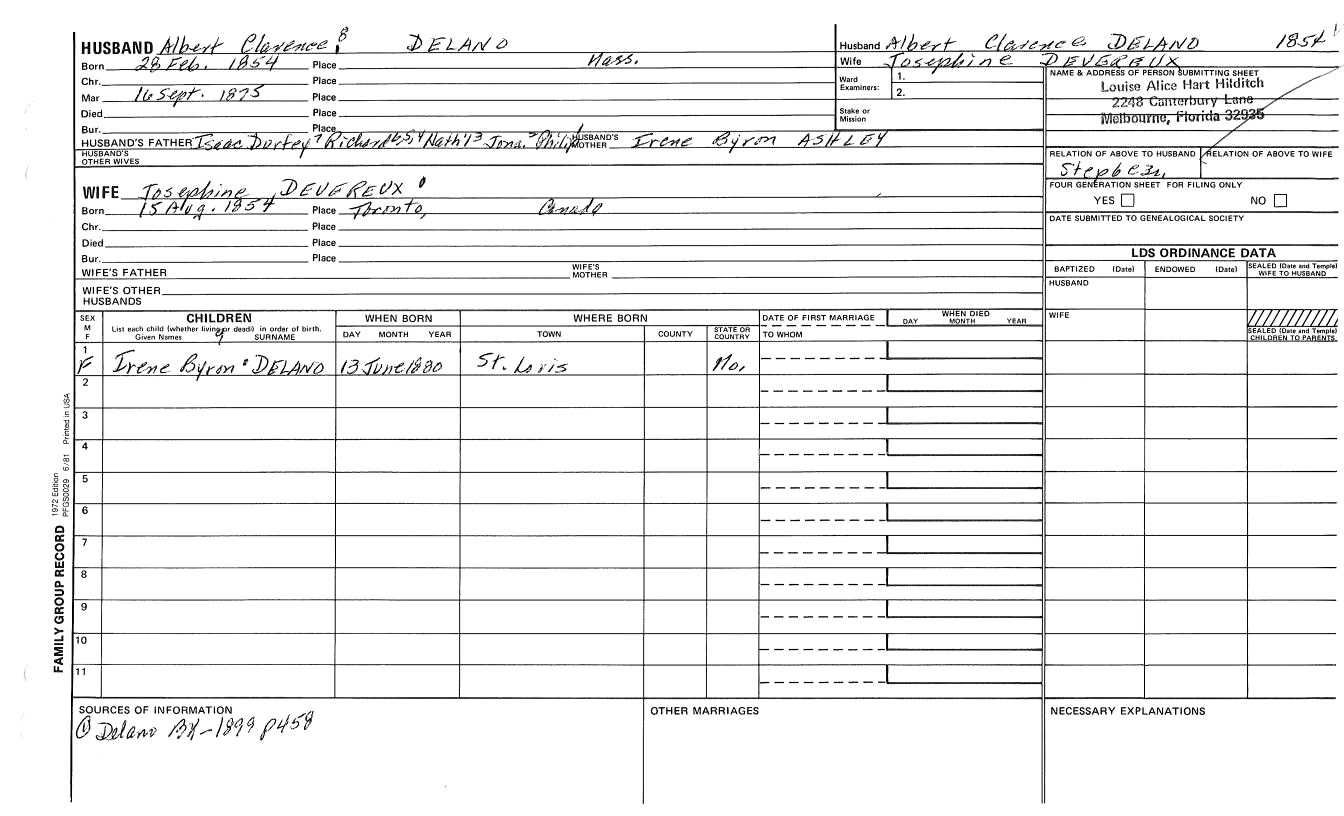 HUSBAND Albert Clarence 8 DELANO
Born 28 Feb. 1854 Place Mass.
Chr. Place
Mar 16 Sept. 1875 Place
Died Place
Bur. Place
HUSBAND'S FATHER Isaac Durfey 7 Richard 6,5,4 Nath'l 3 Jona. 2 Philip 1 HUSBAND'S MOTHER Irene Byron ASHLEY
HUSBAND'S OTHER WIVES
WIFE Josephine DEVEREUX
Born 15 Aug. 1854 Place Toronto, Canada
Chr. Place
Died Place
Bur. Place
WIFE'S FATHER WIFE'S MOTHER
WIFE'S OTHER HUSBANDS
Husband Albert Clarence DELANO 1854
Wife Josephine DEVEREUX
Ward Examiners: 1.
2.
Stake or Mission
NAME & ADDRESS OF PERSON SUBMITTING SHEET
Louise Alice Hart Hilditch
2248 Canterbury Lane
Melbourne, Florida 32935
RELATION OF ABOVE TO HUSBAND RELATION OF ABOVE TO WIFE
Step 6c3r,
FOUR GENERATION SHEET FOR FILING ONLY
YES NO
DATE SUBMITTED TO GENEALOGICAL SOCIETY
LDS ORDINANCE DATA
BAPTIZED (Date) ENDOWED (Date) SEALED (Date and Temple) WIFE TO HUSBAND
HUSBAND
WIFE
SEALED (Date and Temple) CHILDREN TO PARENTS
SEX M F
CHILDREN
List each child (whether living or dead) in order of birth.
Given Names SURNAME
WHEN BORN
DAY MONTH YEAR
WHERE BORN
TOWN COUNTY STATE OR COUNTRY
DATE OF FIRST MARRIAGE
TO WHOM
WHEN DIED
DAY MONTH YEAR
1
F Irene Byron 9 DELANO 13 June 1880 St. Loris Mo.
2
3
4
5
6
7
8
9
10
11
FAMILY GROUP RECORD 1972 Edition PFGS0029 6/81 Printed in USA
SOURCES OF INFORMATION
① Delano BK-1899 p458
OTHER MARRIAGES
NECESSARY EXPLANATIONS